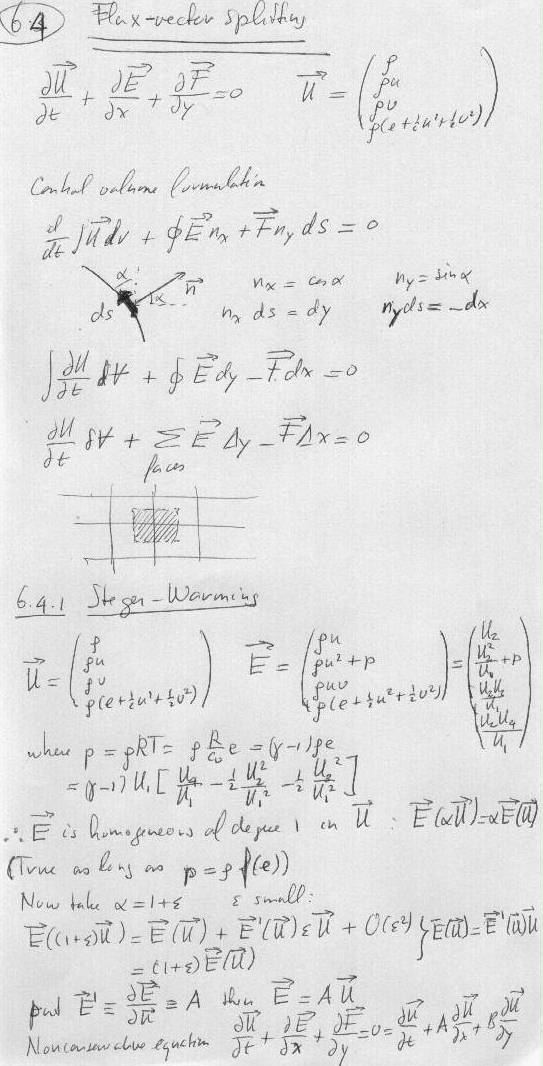 6.4 Flux-vector splitting
∂U⃗/∂t + ∂E⃗/∂x + ∂F⃗/∂y = 0   U⃗ = (ρ, ρu, ρv, ρ(e + ½u² + ½v²))
Control volume formulation
d/dt ∫U⃗ dv + ∮ E⃗ n_x + F⃗ n_y ds = 0
α n⃗ α n_x = cos α   n_y = sin α
ds   n_x ds = dy   n_y ds = -dx
∫ ∂U/∂t dV + ∮ E⃗ dy - F⃗ dx = 0
∂U/∂t δV + Σ E⃗ Δy - F⃗ Δx = 0
faces
6.4.1 Steger-Warming
U⃗ = (ρ, ρu, ρv, ρ(e + ½u² + ½v²))   E⃗ = (ρu, ρu² + p, ρuv, ρ(e + ½u² + ½v²)) = (U₂, U₂²/U₁ + p, U₂U₃/U₁, U₂U₄/U₁)
where p = ρRT = ρ R/c_v e = (γ-1)ρe
= (γ-1) U₁ [U₄/U₁ - ½ U₂²/U₁² - ½ U₃²/U₁²]
∴ E⃗ is homogeneous of degree 1 in U⃗ : E⃗(αU⃗) = αE⃗(U⃗)
(True as long as p = ρ f(e))
Now take α = 1+ε   ε small:
E⃗((1+ε)U⃗) = E⃗(U⃗) + E⃗'(U⃗)εU⃗ + O(ε²) } E⃗(U⃗) = E⃗'(U⃗)U⃗
= (1+ε)E⃗(U⃗)
put E⃗' ≡ ∂E⃗/∂U⃗ ≡ A then E⃗ = A U⃗
Nonconservative equation ∂U⃗/∂t + ∂E⃗/∂x + ∂F⃗/∂y = 0 = ∂U⃗/∂t + A ∂U⃗/∂x + B ∂U⃗/∂y